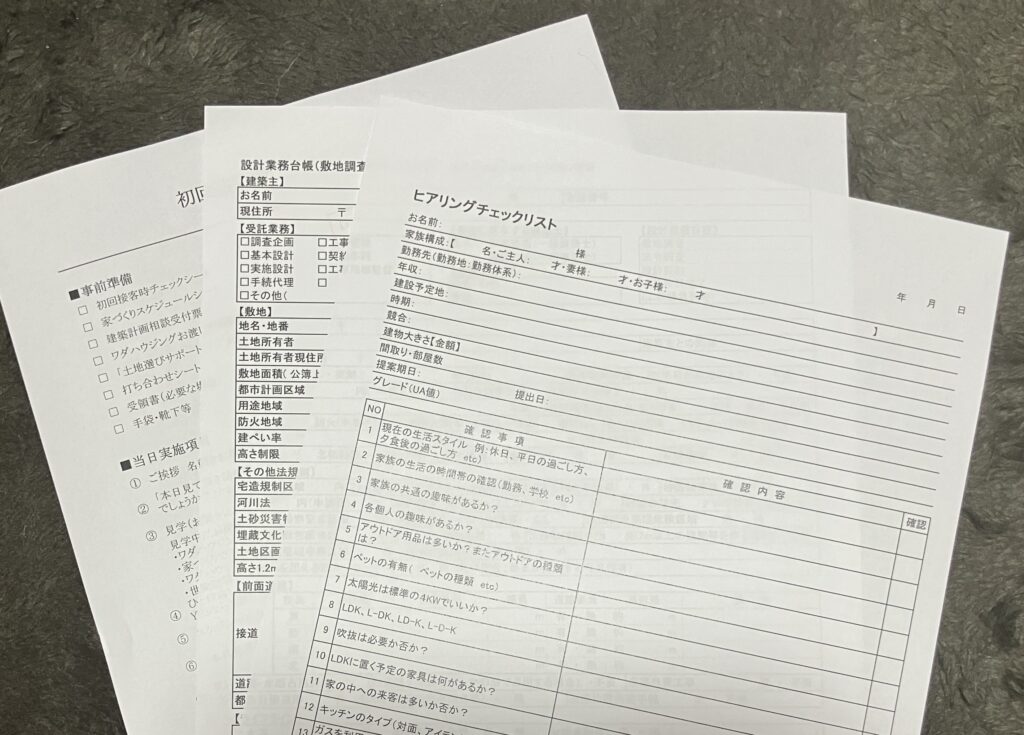 初回
■事前準備
□ 初回接客時チェックシー
□ 家づくりスケジュールシ
□ 建築計画相談受付票
□ ワダハウジングお渡し
□ 「土地選びサポート
□ 打ち合わせシート
□ 受領書(必要な場
□ 手袋・靴下等
■当日実施項
① ご挨拶 名
② 「本日見て
でしょうか
③ 見学(お
見学中
・ワダ
・家づ
・ワダ
・世
ひ
④ Y
⑤
⑥
設計業務台帳(敷地調査
【建築主】
お名前
現住所 〒
【受託業務】
□調査企画 □工事
□基本設計 □契約
□実施設計 □工事
□手続代理 □
□その他(
【敷地】
地名・地番
土地所有者
土地所有者現住所
敷地面積(公簿上
都市計画区域
用途地域
防火地域
建ぺい率
高さ制限
【その他法規
宅造規制区
河川法
土砂災害特
埋蔵文化
土地区画
高さ1.2m
【前面道
接道
道路
都
【
ヒアリングチェックリスト
年 月 日
お名前: 様
家族構成:【 名・ご主人: 才・妻様: 才・お子様: 才 】
勤務先(勤務地:勤務体系):
年収:
建設予定地:
時期:
競合:
建物大きさ【金額】
間取り・部屋数
提案期日: 提出日:
グレード(UA値)
NO 確認事項 確認内容 確認
1 現在の生活スタイル 例:休日、平日の過ごし方、
夕食後の過ごし方 etc)
2 家族の生活の時間帯の確認(勤務、学校 etc)
3 家族の共通の趣味があるか?
4 各個人の趣味があるか?
5 アウトドア用品は多いか?またアウトドアの種類
は?
6 ペットの有無( ペットの種類 etc)
7 太陽光は標準の4KWでいいか?
8 LDK、L-DK、LD-K、L-D-K
9 吹抜は必要か否か?
10 LDKに置く予定の家具は何があるか?
11 家の中への来客は多いか否か?
12 キッチンのタイプ(対面、アイラン
13 ガスを利用